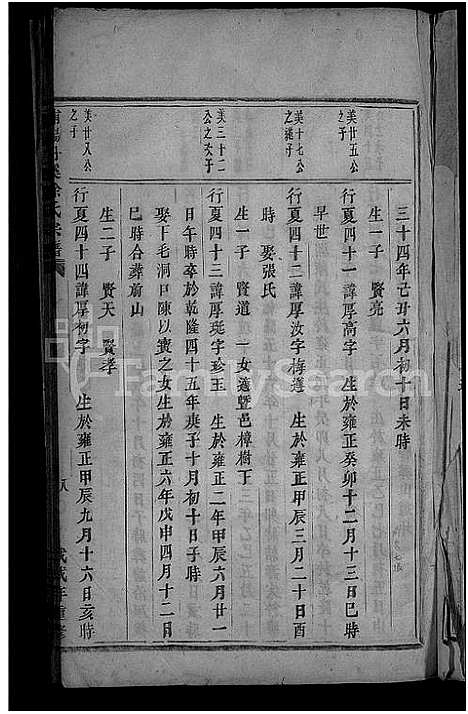 三十四年己丑六月初十日未時
生一子 賢亮
美廿五公之子
行夏四十一諱厚高字 生於雍正癸卯十二月十三日巳時
早世
美十七公之繼子
行夏四十二諱厚汝字梅逵 生於雍正甲辰三月二十日酉
時 娶張氏
生一子 賢道 一女適暨邑樟樹王
美三十二公之次子
行夏四十三諱厚珽字珍玉 生於雍正二年甲辰六月廿一
日午時卒於乾隆四十五年庚子十月初十日子時
娶下毛洞口陳以賓之女生於雍正六年戊申四月十二日
巳時合葬前山
生二子 賢天 賢孝
美廿八公之子
行夏四十四諱厚初字 生於雍正甲辰九月十六日亥時
氏宗譜
八
年重修
FamilySearch